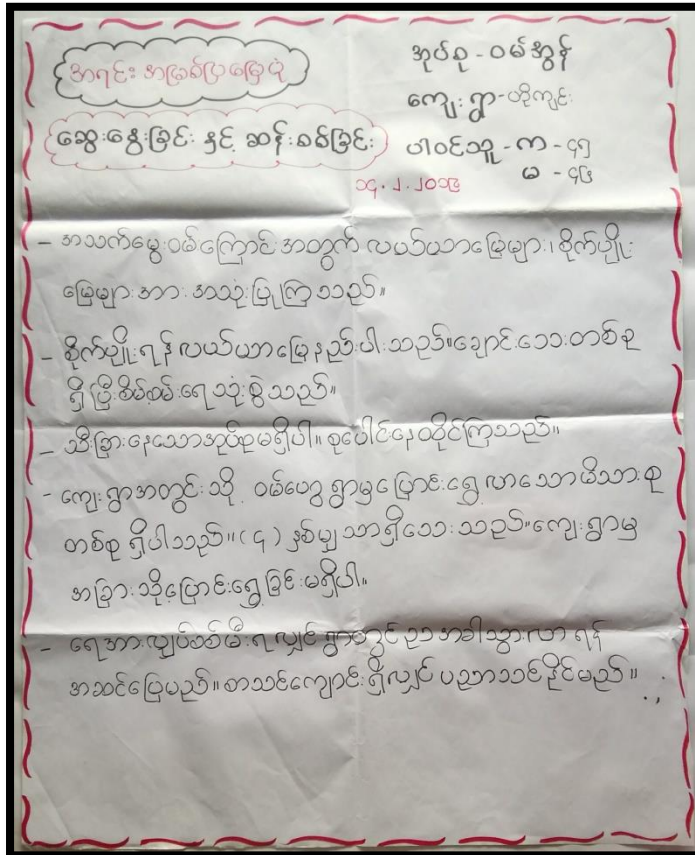 အရင်းအမြစ်ပြမြေပုံ
ဆွေးနွေးခြင်း နှင့် ဆန်းစစ်ခြင်း
အုပ်စု - ဝမ်အွန်
ကျေးရွာ - ဟိုကျင်း
ပါဝင်သူ - က - ၄၅
မ - ၄၆
၁၄.၂.၂၀၁၆
- အသက်မွေးဝမ်းကြောင်းအတွက် လယ်ယာမြေများ၊ စိုက်ပျိုး
မြေများအား အသုံးပြုကြသည်။
- စိုက်ပျိုးရန်လယ်ယာမြေနည်းပါးသည်။ချောင်းသေးတစ်ခု
ရှိပြီးစိမ့်စမ်းရေသုံးစွဲသည်။
- သီးခြားနေသောအုပ်စုမရှိပါ။ စုပေါင်းနေထိုင်ကြသည်။
- ကျေးရွာအတွင်းသို့ ရွာမှပြောင်းရွှေ့လာသောမိသားစု
တစ်စု ရှိပါသည်။ (၄) နှစ်မျှသာရှိသေးသည်။ကျေးရွာမှ
အခြားသို့ပြောင်းရွှေ့ခြင်းမရှိပါ။
- ရေအားလျှပ်စစ်မီးရလျှင် ရွာတွင်ညအခါသွားလာရန်
အဆင်ပြေမည်။ စာသင်ကျောင်းရှိလျှင် ပညာသင်နိုင်မည်။